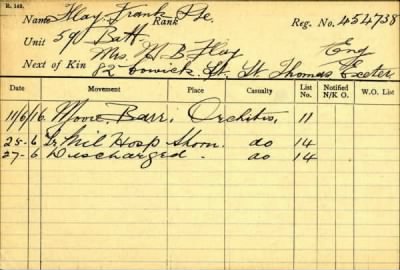 R. 149.
Name Flay, Frank Rank Pte. Reg. No. 454738
Unit 59 Batt.
Next of Kin Mrs H B Flay Eng
82 Cowick St. St Thomas Exeter
Date Movement Place Casualty List No. Notified N/K O. W.O. List
11/6/16 Moore Barr. Orchitis, 11
25-6 Mil Hosp Shorn. do 14
27-6 Discharged. do 14